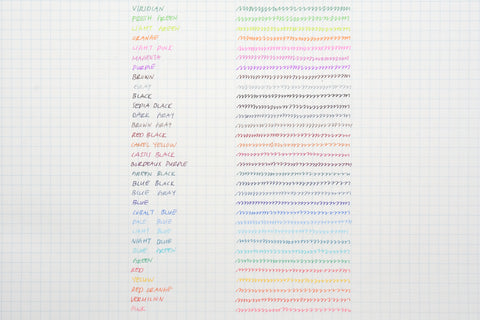 VIRIDIAN
FRESH GREEN
LIGHT GREEN
ORANGE
LIGHT PINK
MAGENTA
PURPLE
BROWN
GRAY
BLACK
SEPIA BLACK
DARK GRAY
BROWN GRAY
RED BLACK
CAMEL YELLOW
CASSIS BLACK
BORDEAUX PURPLE
GREEN BLACK
BLUE BLACK
BLUE GRAY
BLUE
COBALT BLUE
PALE BLUE
LIGHT BLUE
NIGHT BLUE
BLUE GREEN
GREEN
RED
YELLOW
RED ORANGE
VERMILION
PINK